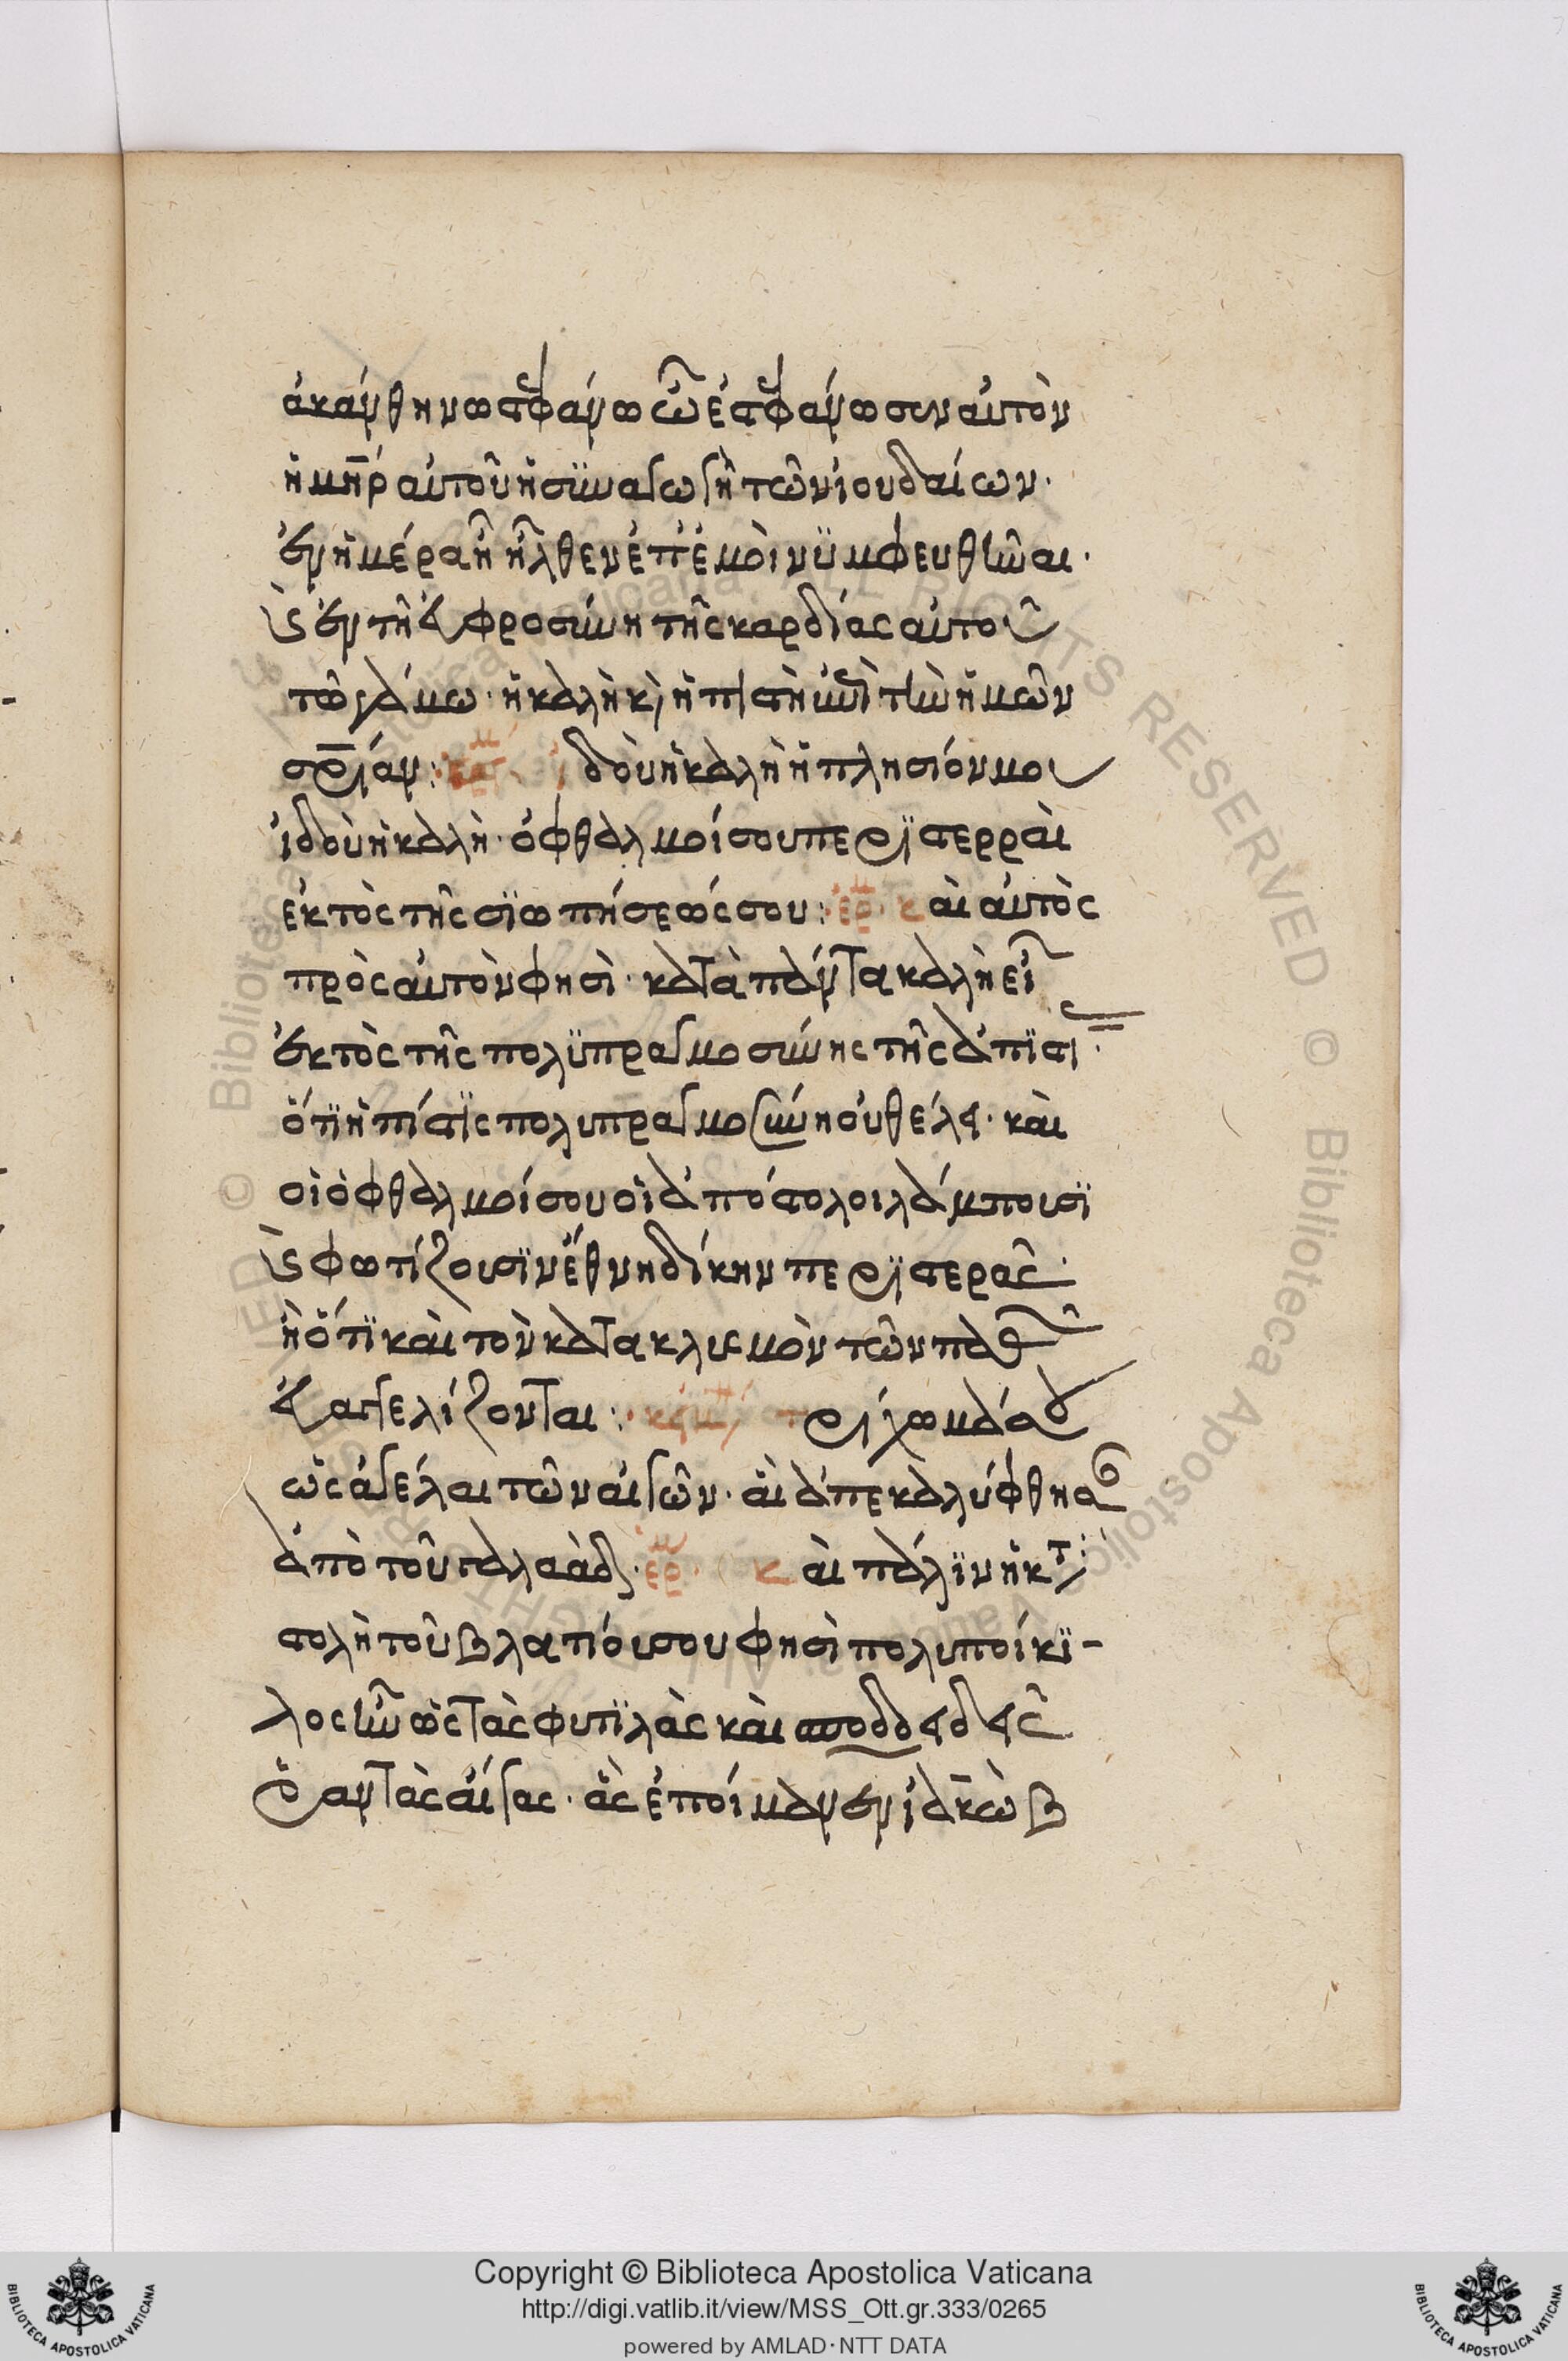 ἀκάνθηνω στεφάνω ὧ ἐστεφάνωσεν αὐτὸν
ἡ μηρ αὐτοῦ ἡ συναγωγὴ τῶν ἰουδαίων.
ἐν ἡμέρα ἧ ἦλθεν ἐπ' ἐμοὶ νϋμφευθῆναι.
καὶ ἐν τῆ εὐφροσύνη τῆς καρδίας αὐτοῦ
τῶ γάμω. ἡ καλὴ καὶ ἡ πιστὴ ἐπὶ τὴν ἡμῶν
σριαν: κείμ ἰδοὺ ἡ καλὴ ἡ πλησίον μου
ἰδοὺ ἡ καλὴ. ὀφθαλμοί σου περϊστερραὶ
ἐκτὸς τῆς σϊωπήσεώς σου: ἑρμ. καὶ αὐτὸς
πρὸς αὐτὸν φησὶ. κατὰ πάντα καλὴ εἶ
ἐκτὸς τῆς πολϋπραγμοσύνης τῆς ἀπϊστι.
ὅτϊ ἡ πίστϊς πολυπραγμοσύνην οὐ θέλει. καὶ
οἱ ὀφθαλμοί σου οἱ ἀπόστολοι λάμπουσϊ
καὶ φωτίζουσϊν ἔθνη δίκην περϊστερᾶς.
ἢ ὅτϊ καὶ τὸν κατακλυσμὸν τῶν παθῶν
εὐαγγελίζονται: κείμ τρίχωμά σου
ὡς ἀγέλαι τῶν αἰγῶν. αἳ ἀπεκαλύφθησαν
ἀπὸ τοῦ γαλαάδ. ἑρμ. καὶ πάλϊν ἡ κτ
στολὴ τοῦ βλατίου σου φησὶ πολυποίκϊ-
λος ἦν ὡς τὰς φυτϊλὰς καὶ ποδδειδεῖς
ῥαντὰς αἶγας. ἃς ἐποίμανεν ἰακὼβ